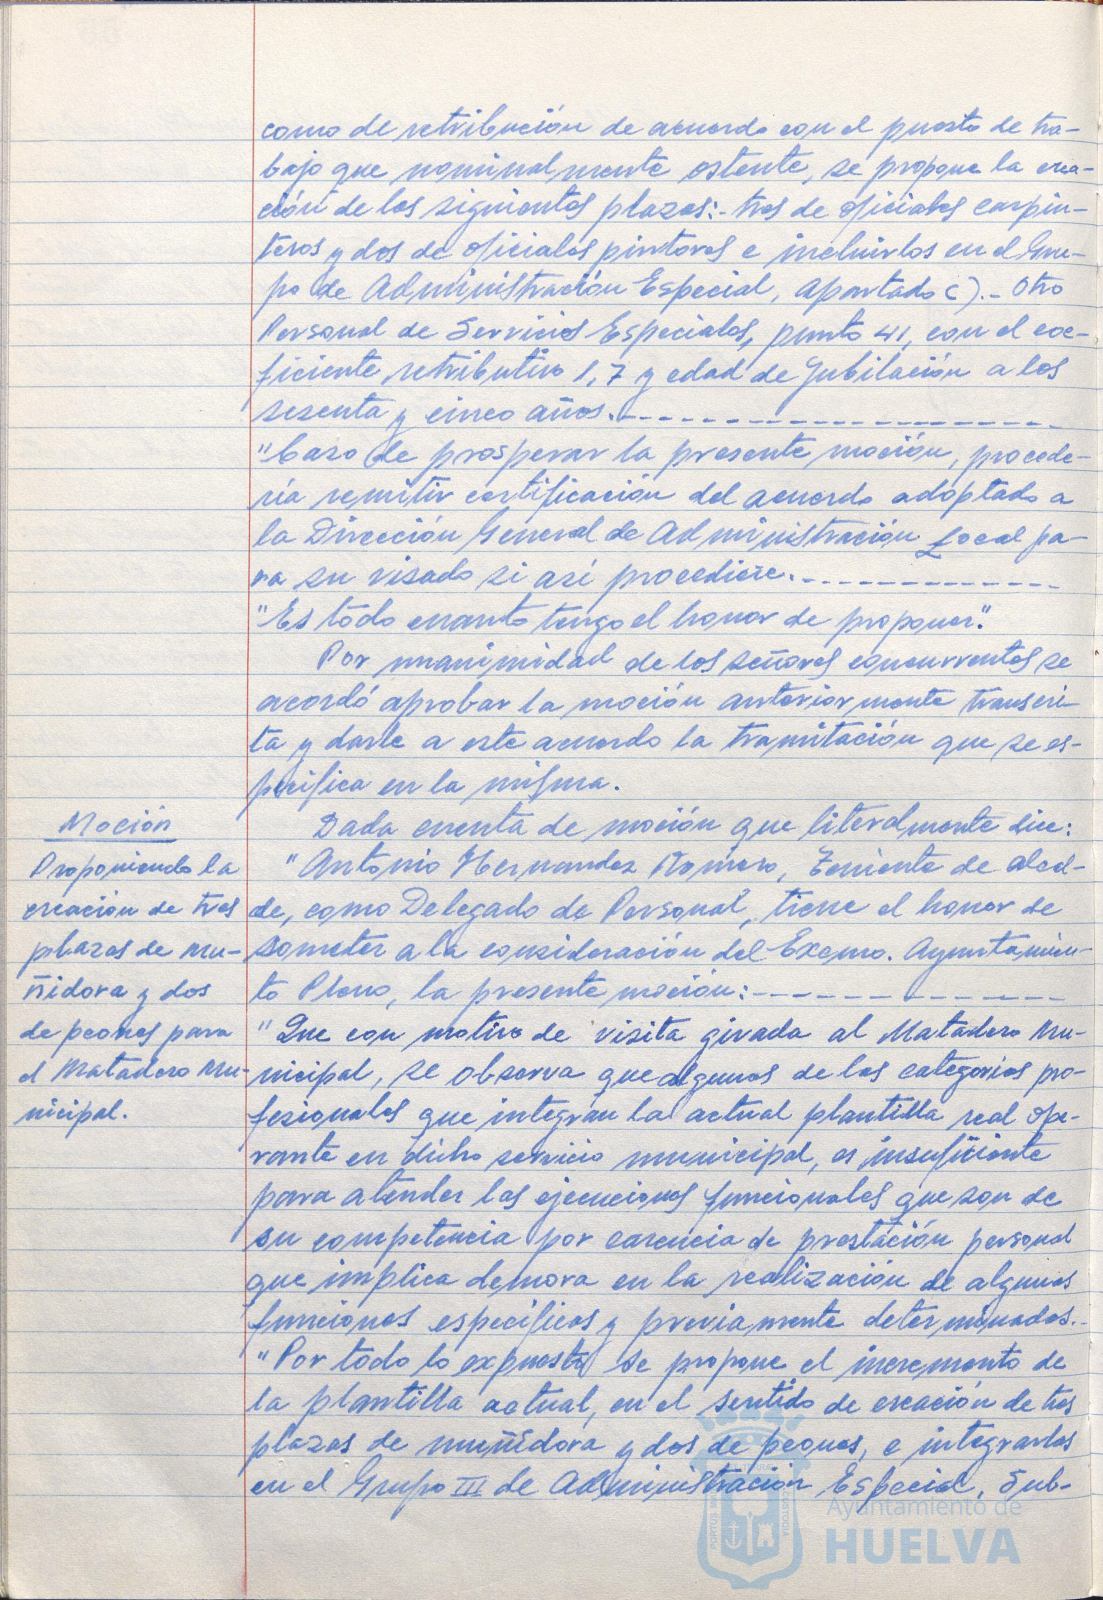 como de retribución de acuerdo con el puesto de tra-
bajo que nominalmente ostente, se propone la crea-
ción de las siguientes plazas:- tres de oficiales carpin-
teros y dos de oficiales pintores e incluirlos en el Gru-
po de Administración Especial, apartado C).- Otro
Personal de Servicios Especiales, punto 41, con el coe-
ficiente retributivo 1,7 y edad de Jubilación a los
sesenta y cinco años.-
"Caso de prosperar la presente moción, procede-
ría remitir certificación del acuerdo adoptado a
la Dirección General de Administración Local pa-
ra su visado si así procediere.-
"Es todo cuanto tengo el honor de proponer."
Por unanimidad de los señores concurrentes se
acordó aprobar la moción anteriormente transcri-
ta y darle a este acuerdo la tramitación que se es-
pecifica en la misma.
Moción
Proponiendo la
creación de tres
plazas de mu-
ñidora y dos
de peones para
el Matadero Mu-
nicipal.
Dada cuenta de moción que literalmente dice:
"Antonio Hernandez Romero, Teniente de alcal-
de, como Delegado de Personal, tiene el honor de
someter a la consideración del Excmo. Ayuntamien-
to Pleno, la presente moción:-
"Que con motivo de visita girada al Matadero Mu-
nicipal, se observa que algunas de las categorías pro-
fesionales que integran la actual plantilla real ope-
rante en dicho servicio municipal, es insuficiente
para atender las ejecuciones funcionales que son de
su competencia por carencia de prestación personal
que implica demora en la realización de algunas
funciones específicas y previamente determinadas.-
"Por todo lo expuesto se propone el incremento de
la plantilla actual, en el sentido de creación de tres
plazas de muñidora y dos de peones, e integrarlos
en el Grupo III de Administración Especial, Sub-
PORTUS
CUSTODIA
Ayuntamiento de
HUELVA